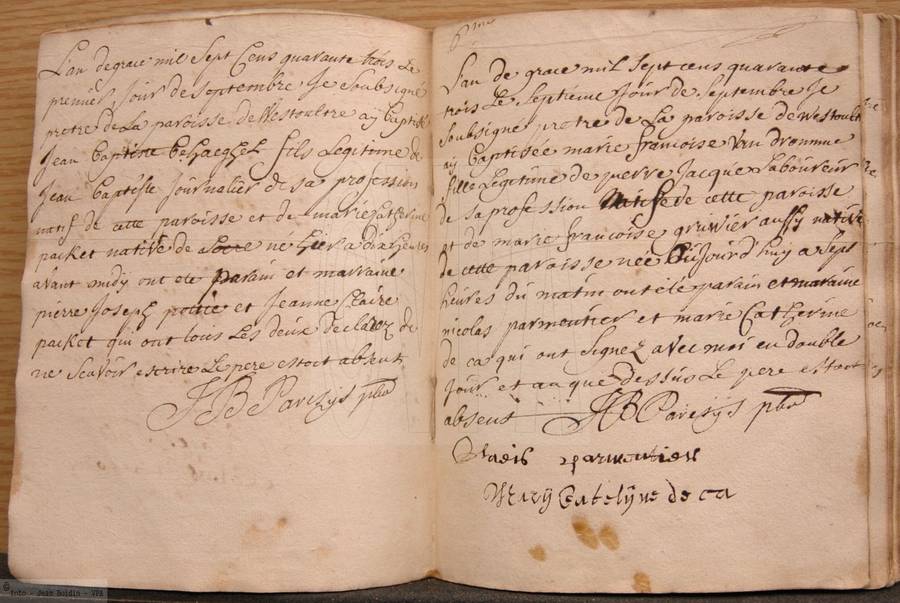 L'an de grace mil sept cens quarante trois Le
premier Jour de Septembre Je Soubsigné
pretre de La paroisse de Westoultre ay baptisé
Jean baptiste behaeghel fils Legitime de
Jean baptiste Journalier de sa profession
natif de cette paroisse et de marie Catherine
packet native de Locre ne hier a dix heures
avant midy ont ete parain et marraine
pierre Joseph potite et Jeanne Claire
packet qui ont tous Les deux declarez de
ne scavoir escrire Le pere estoit absent
JB Parezys pbr
6me
L'an de grace mil sept cens quarante
trois Le Septieme Jour de Septembre Je
Soubsigné pretre de La paroisse de Westoult
ay baptisée marie francoise Van dromme
fille Legitime de pierre Jacque Laboureur
de sa profession natif de cette paroisse
et de marie francoise gruwier aussy native
de cette paroisse née aujourd'huy a sept
heures du matin ont ete parain et maraine
nicolas parmentier et marie Catherine
de ca qui ont signez avec moi en double
Jour et an que dessus Le pere estoit
absent JB Parezys pbr
parmentier
Marij Catelijne de ca
© foto - Jean Boidin - VPA